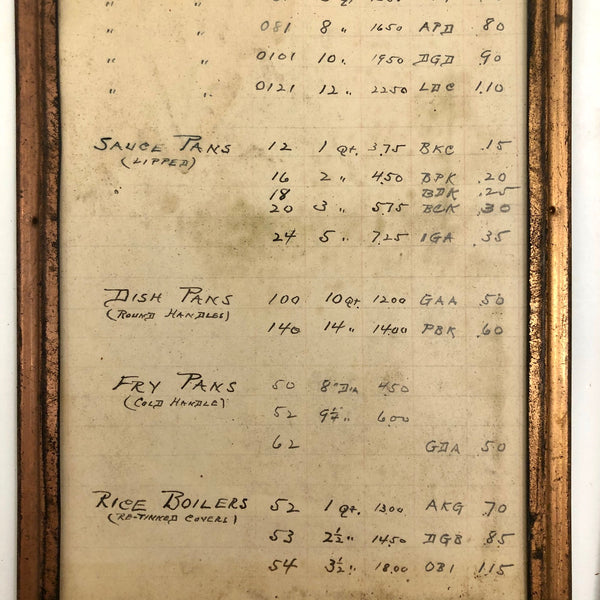 " "
" " 081 8 " 1650 APD .80
" " 0101 10 " 1950 DGD .90
" " 0121 12 " 2250 LDC 1.10
SAUCE PANS 12 1 Qt. 3.75 BKC .15
(LIPPED)
16 2 " 4.50 BPK .20
18 BDK .25
20 3 " 575 BCK .30
24 5 " 7.25 IGA .35
DISH PANS 100 10 Qt. 1200 GAA .50
(ROUND HANDLES)
140 14 " 14.00 PBK .60
FRY PANS 50 8" DIA 4.50
(COLD HANDLE)
52 9½ " 6.00
62 GDA .50
RICE BOILERS 52 1 Qt. 13.00 AKG .70
(RE-TINNED COVERS)
53 2½ " 14.50 DGB .85
54 3½ " 18.00 OBI 1.15